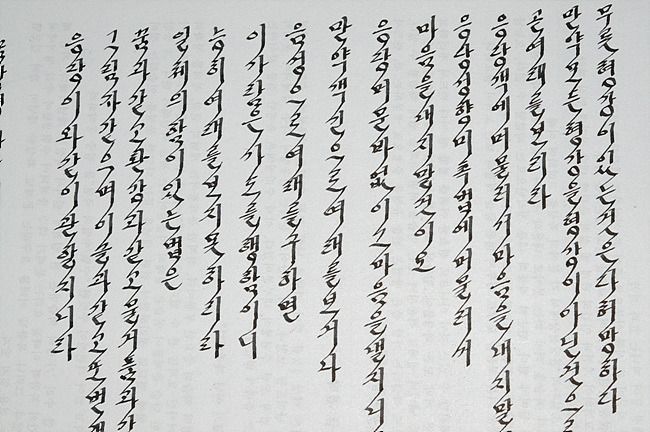 무릇형상이있는것은다허망하다
만약모든형상을형상이아닌것으로
곧여래를보리라
응당색에머물러서마음을내지말
응당성향미촉법에머물러서
마음을내지말것이오
응당머문바없이그마음을낼지니
만약색신으로여래를보거나
음성으로여래를구하면
이사람은사도를행함이니
능히여래를보지못하리라
일체의함이있는법은
꿈과같고환상과같고물거품과
그림자같으며이슬과같고또번개
응당이와같이관할지니라